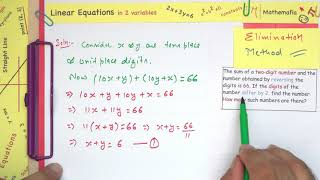 Linear Equations in 2 variables
2x+3y=6
Mathemafia
Straight Line
Elimination
Method
Soln:- Consider x & y are tens place
& unit place digits.
Now (10x+y)+(10y+x)=66
⇒ 10x+y+10y+x=66
⇒ 11x+11y=66
⇒ 11(x+y)=66 ⇒ x+y=66/11
⇒ x+y=6 —①
The sum of a two-digit number and the
number obtained by reversing the
digits is 66. If the digits of the
number differ by 2, find the number.
How many such numbers are there?